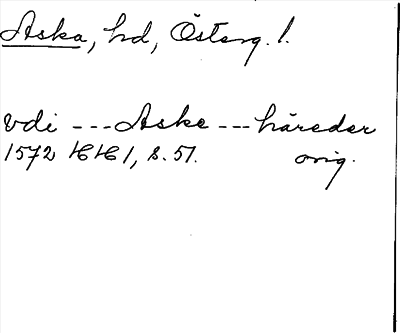 Aska, hd, Österg. l.
vdi --- Aske --- häreder
1572 HH 1, s. 51. orig.